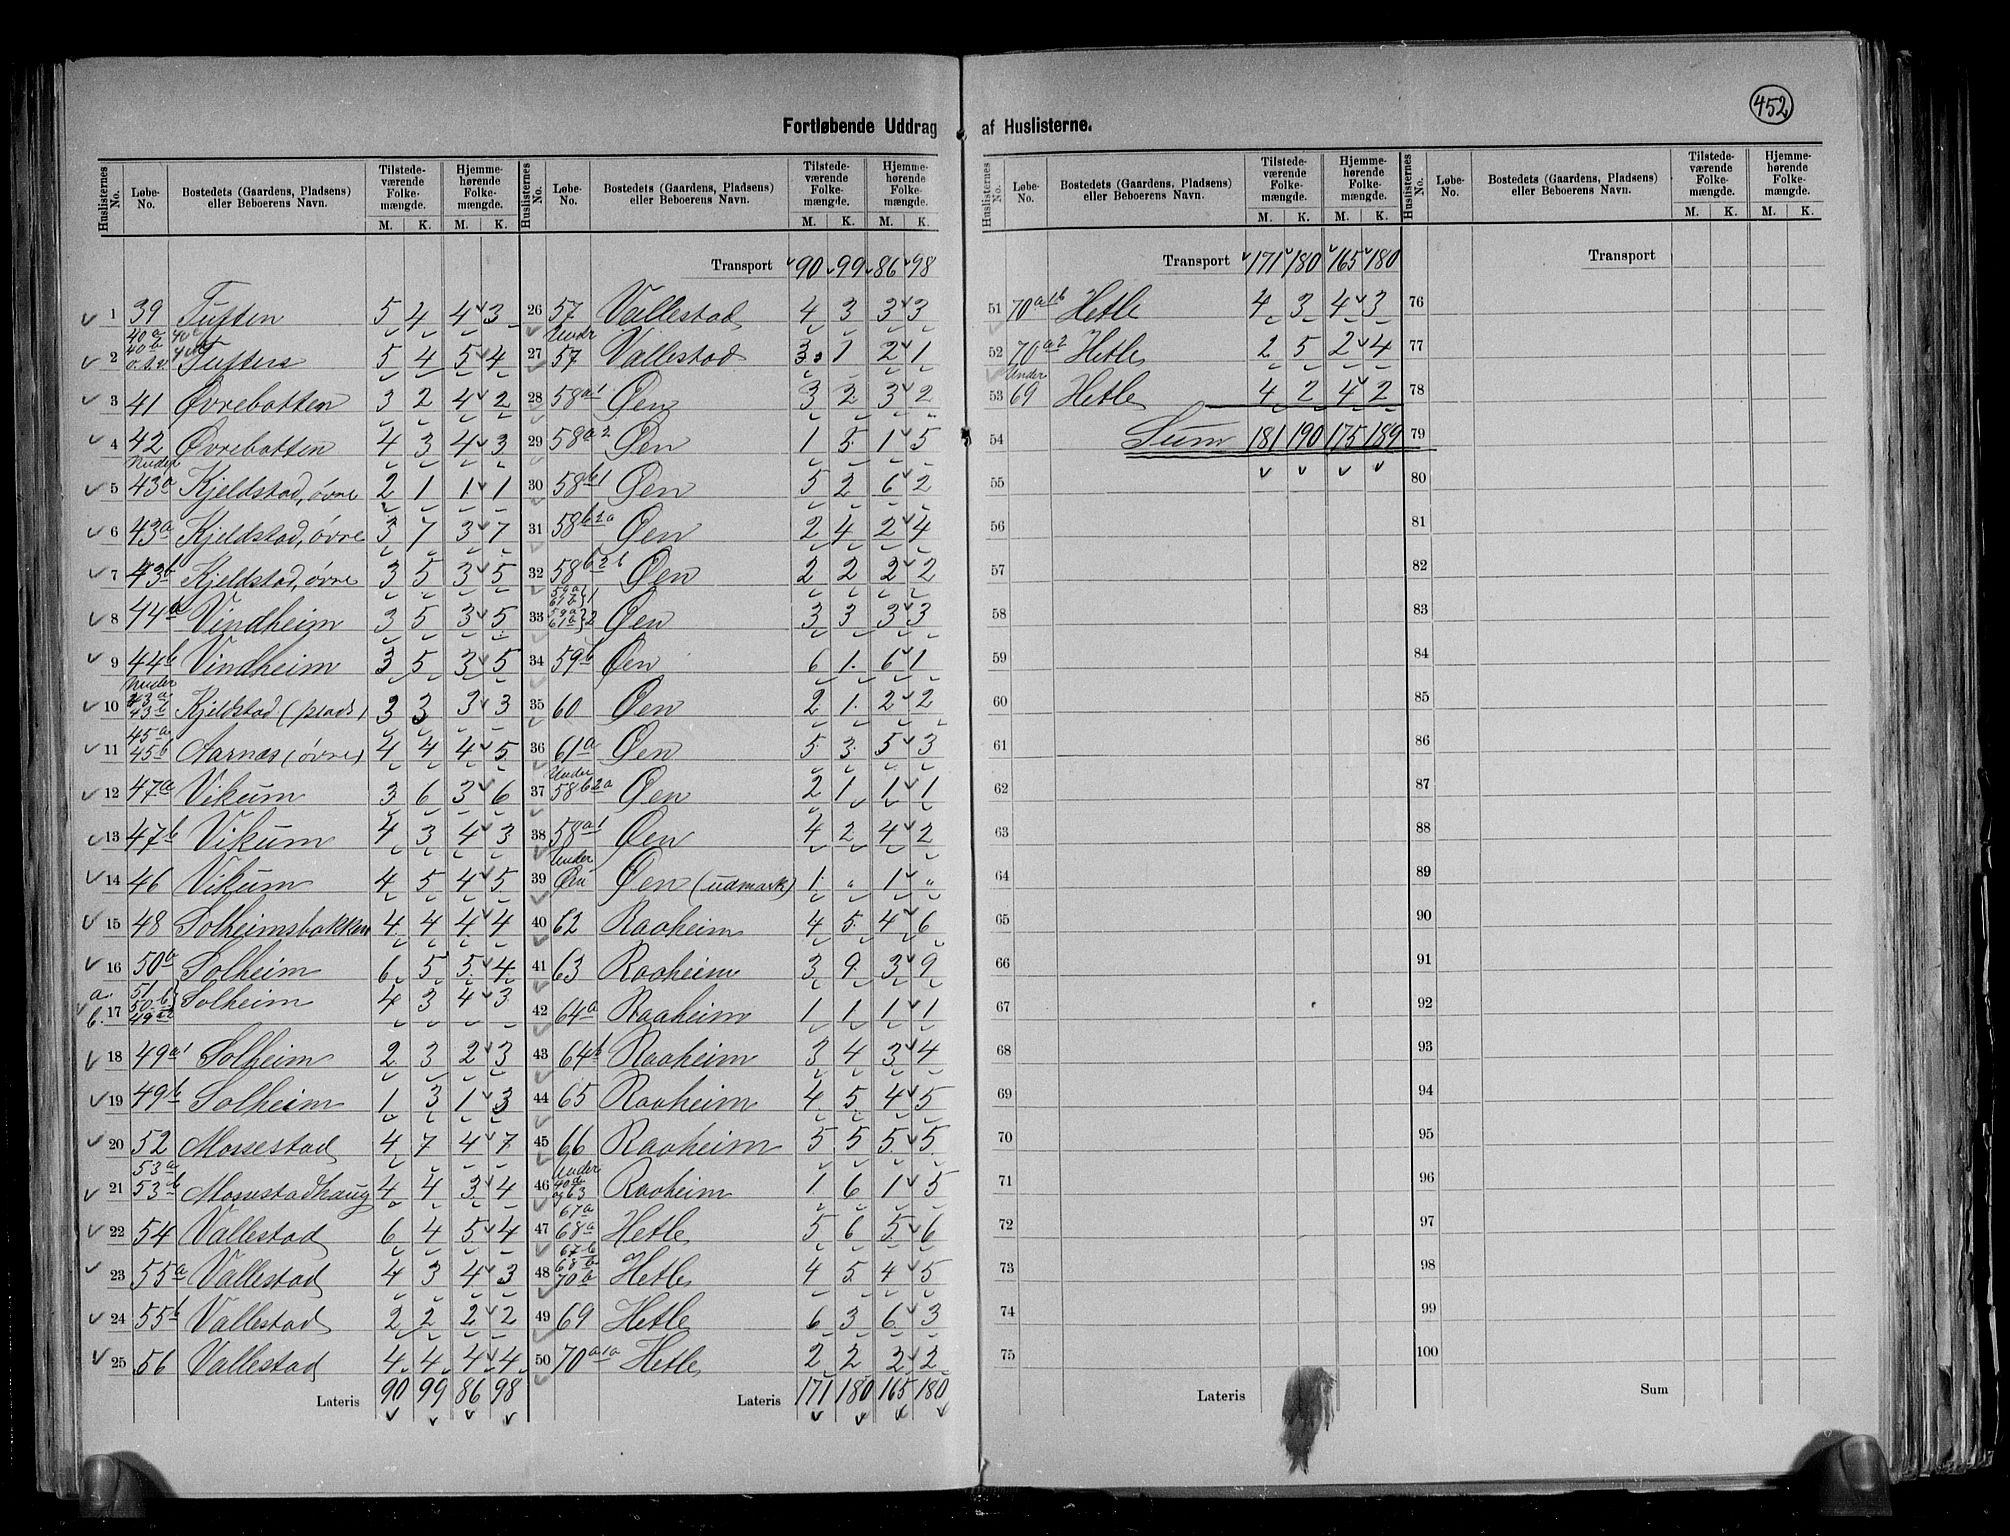 452
Fortløbende Uddrag af Huslisterne.
Huslisternes No. Løbe-No. Bostedets (Gaardens, Pladsens) eller Beboerens Navn. Tilstedeværende Folkemængde. M. K. Hjemmehørende Folkemængde. M. K.
1 39 Tuften 5 4 4 3
2 40a 40b Tuften 5 4 5 4
3 41 Øvrebotten 3 2 4 2
4 42 Øvrebotten 4 3 4 3
5 Under 43a Kjeldstad, øvre 2 1 1 1
6 43a Kjeldstad, øvre 3 7 3 7
7 43b Kjeldstad, øvre 3 5 3 5
8 44a Vindheim 3 5 3 5
9 44b Vindheim 3 5 3 5
10 Under 43a 43b Kjeldstad (plads) 3 3 3 3
11 45a 45b Aarnæs (øvre) 4 4 4 5
12 47a Vikum 3 6 3 6
13 47b Vikum 4 3 4 3
14 46 Vikum 4 5 4 5
15 48 Solheimsbakken 4 4 4 4
16 50a Solheim 6 5 5 4
a. b. 17 51 50b 49a2 Solheim 4 3 4 3
18 49a1 Solheim 2 3 2 3
19 49b Solheim 1 3 1 3
20 52 Mossestad 4 7 4 7
21 53a 53b Mossestadhaug 4 4 3 4
22 54 Vallestad 6 4 5 4
23 55a Vallestad 4 3 4 3
24 55b Vallestad 2 2 2 2
25 56 Vallestad 4 4 4 4
Lateris 90 99 86 98
Huslisternes No. Løbe-No. Bostedets (Gaardens, Pladsens) eller Beboerens Navn. Tilstedeværende Folkemængde. M. K. Hjemmehørende Folkemængde. M. K.
Transport 90 99 86 98
26 57 Vallestad 4 3 3 3
27 Under 57 Vallestad 3 1 2 1
28 58a1 Øen 3 2 3 2
29 58a2 Øen 1 5 1 5
30 58b1 Øen 5 2 6 2
31 58b2a Øen 2 4 2 4
32 58b2b Øen 2 2 2 2
33 59a 61b}1 59a 61a}2 Øen 3 3 3 3
34 59b Øen 6 1 6 1
35 60 Øen 2 1 2 2
36 61a Øen 5 3 5 3
37 Under 58b2a Øen 2 1 1 1
38 58a1 Øen 4 2 4 2
39 Under Øen Øen (udmark) 1 " 1 "
40 62 Raaheim 4 5 4 6
41 63 Raaheim 3 9 3 9
42 64a Raaheim 1 1 1 1
43 64b Raaheim 3 4 3 4
44 65 Raaheim 4 5 4 5
45 66 Raaheim 5 5 5 5
46 Under og 63 Raaheim 1 6 1 5
47 67a 68a Hetle 5 6 5 6
48 67b 68b 70b Hetle 4 5 4 5
49 69 Hetle 6 3 6 3
50 70a1a Hetle 2 2 2 2
Lateris 171 180 165 180
Huslisternes No. Løbe-No. Bostedets (Gaardens, Pladsens) eller Beboerens Navn. Tilstedeværende Folkemængde. M. K. Hjemmehørende Folkemængde. M. K.
Transport 171 180 165 180
51 70a1b Hetle 4 3 4 3
52 70a2 Hetle 2 5 2 4
53 Under 69 Hetle 4 2 4 2
54 Sum 181 190 175 189
55
56
57
58
59
60
61
62
63
64
65
66
67
68
69
70
71
72
73
74
75
Lateris
Huslisternes No. Løbe-No. Bostedets (Gaardens, Pladsens) eller Beboerens Navn. Tilstedeværende Folkemængde. M. K. Hjemmehørende Folkemængde. M. K.
Transport
76
77
78
79
80
81
82
83
84
85
86
87
88
89
90
91
92
93
94
95
96
97
98
99
100
Sum